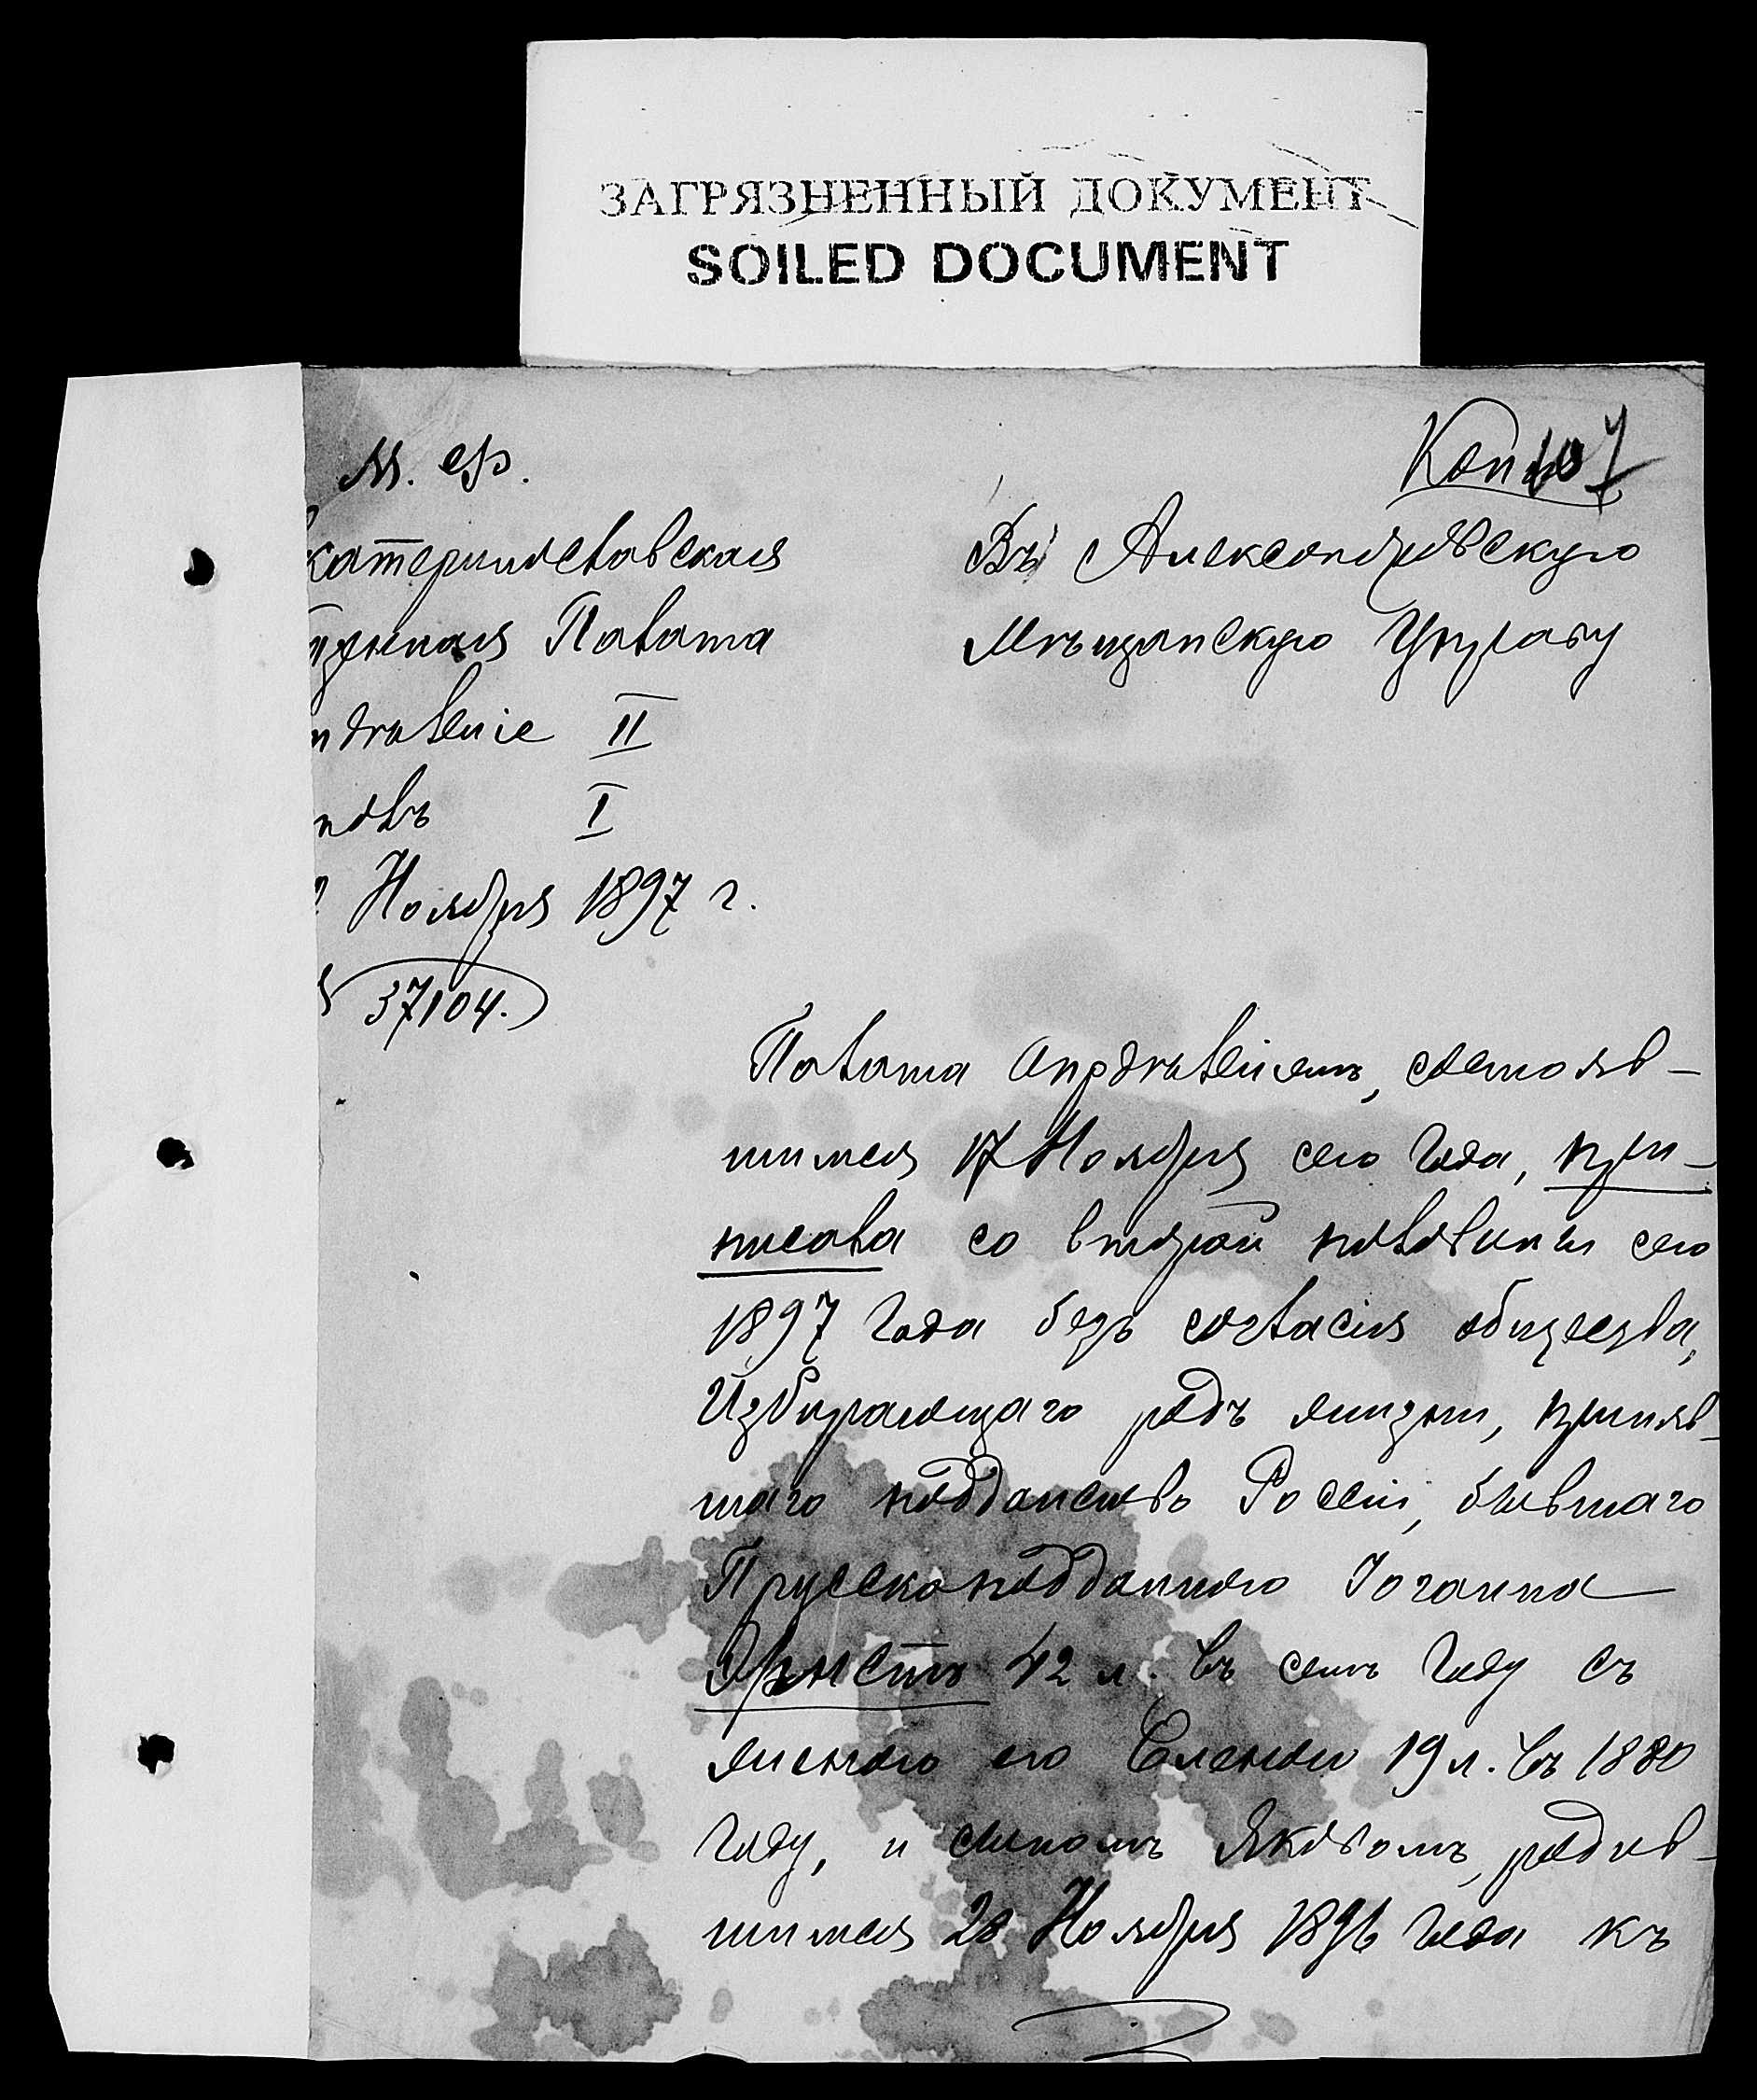 ЗАГРЯЗНЕННЫЙ ДОКУМЕНТ
SOILED DOCUMENT
М. Ф.
Копия
107
катеринославская
Казенная Палата
Отделение II
Столъ I
Ноября 1897 г.
37104.
Въ Александровскую
Мѣщанскую Управу
Палата опредѣленіемъ, состояв-
шимся 17 Ноября сего года, при-
писала со второй половины сего
1897 года безъ согласія общества,
Избирающаго родъ жизни, приняв-
шаго подданство Россіи, бывшаго
Прусско подданного Іоганна
Эрнстъ 42 л. въ семъ году съ
женою его Еленою 19 л. въ 1880
году, и сыномъ Яковомъ, родив-
шимся 20 Ноября 1896 года къ